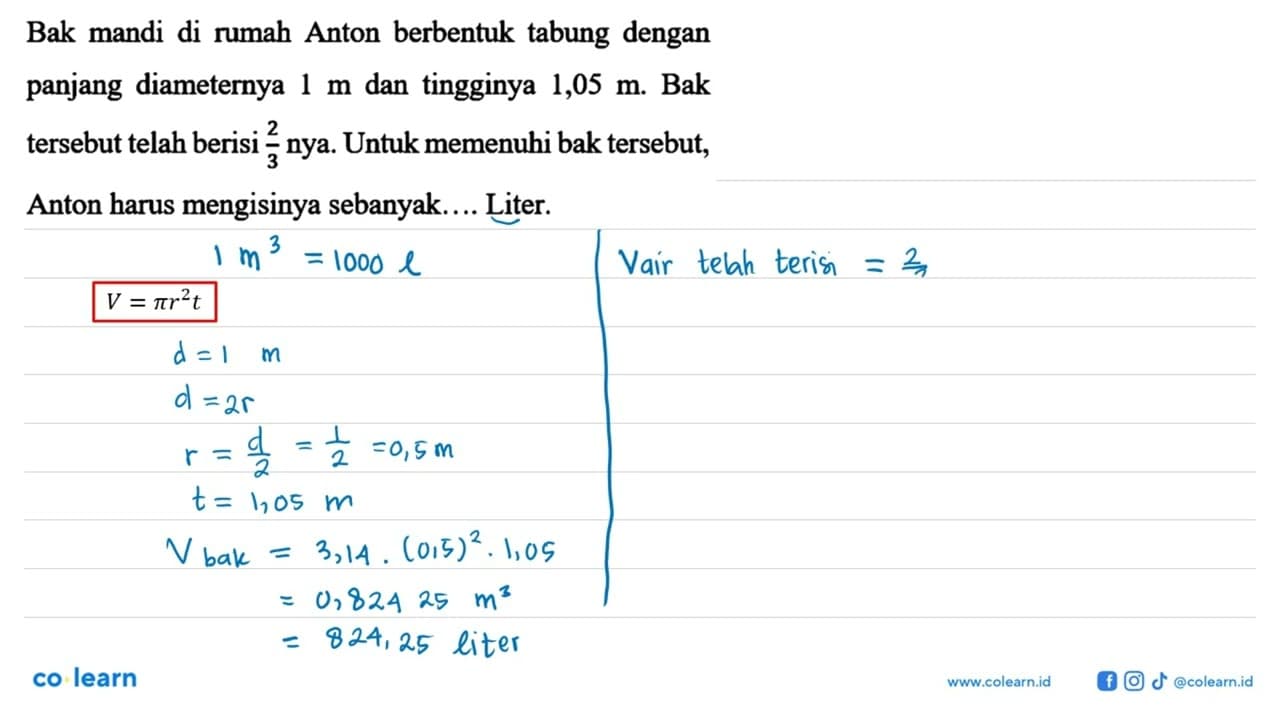 Bak mandi di rumah Anton berbentuk tabung dengan
panjang diameternya 1 m dan tingginya 1,05 m. Bak
tersebut telah berisi 2/3 nya. Untuk memenuhi bak tersebut,
Anton harus mengisinya sebanyak.... Liter.
1 m³ = 1000 l
V = πr²t
d = 1 m
d = 2r
r = d/2 = 1/2 = 0,5 m
t = 1,05 m
V bak = 3,14 . (0,5)² . 1,05
= 0,824 25 m³
= 824,25 liter
Vair telah terisi = 2/3
co learn
www.colearn.id
@colearn.id